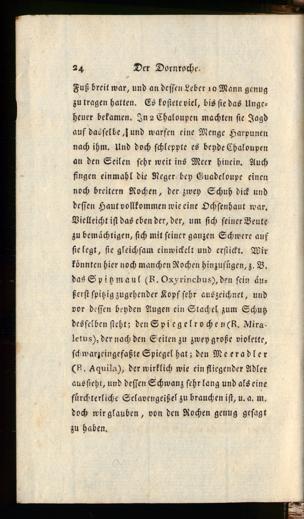 24 Der Dornroche.
Fuß breit war, und an dessen Leber 10 Mann genug
zu tragen hatten. Es kostete viel, bis sie das Unge-
heuer bekamen. In 2 Chaloupen machten sie Jagd
auf dasselbe, und warfen eine Menge Harpunen
nach ihm. Und doch schleppte es beyde Chaloupen
an den Seilen sehr weit ins Meer hinein. Auch
fingen einmahl die Neger bey Guadeloupe einen
noch breitern Rochen, der zwey Schuh dick und
dessen Haut vollkommen wie eine Ochsenhaut war.
Vielleicht ist das eben der, der, um sich seiner Beute
zu bemächtigen, sich mit seiner ganzen Schwere auf
sie legt, sie gleichsam einwickelt und erstickt. Wir
könnten hier noch manchen Rochen hinzufügen, z. B.
das Spitzmaul (R. Oxyrinchus), den sein äu-
ßerst spitzig zugehender Kopf sehr auszeichnet, und
vor dessen beyden Augen ein Stachel zum Schutz
desselben steht; den Spiegelrochen (R. Mira-
letus), der nach den Seiten zu zwey große violette,
schwarzeingefaßte Spiegel hat; den Meeradler
(R. Aquila), der wirklich wie ein fliegender Adler
aussieht, und dessen Schwanz sehr lang und als eine
fürchterliche Sclavengeißel zu brauchen ist, u. a. m.
doch wir glauben, von den Rochen genug gesagt
zu haben.